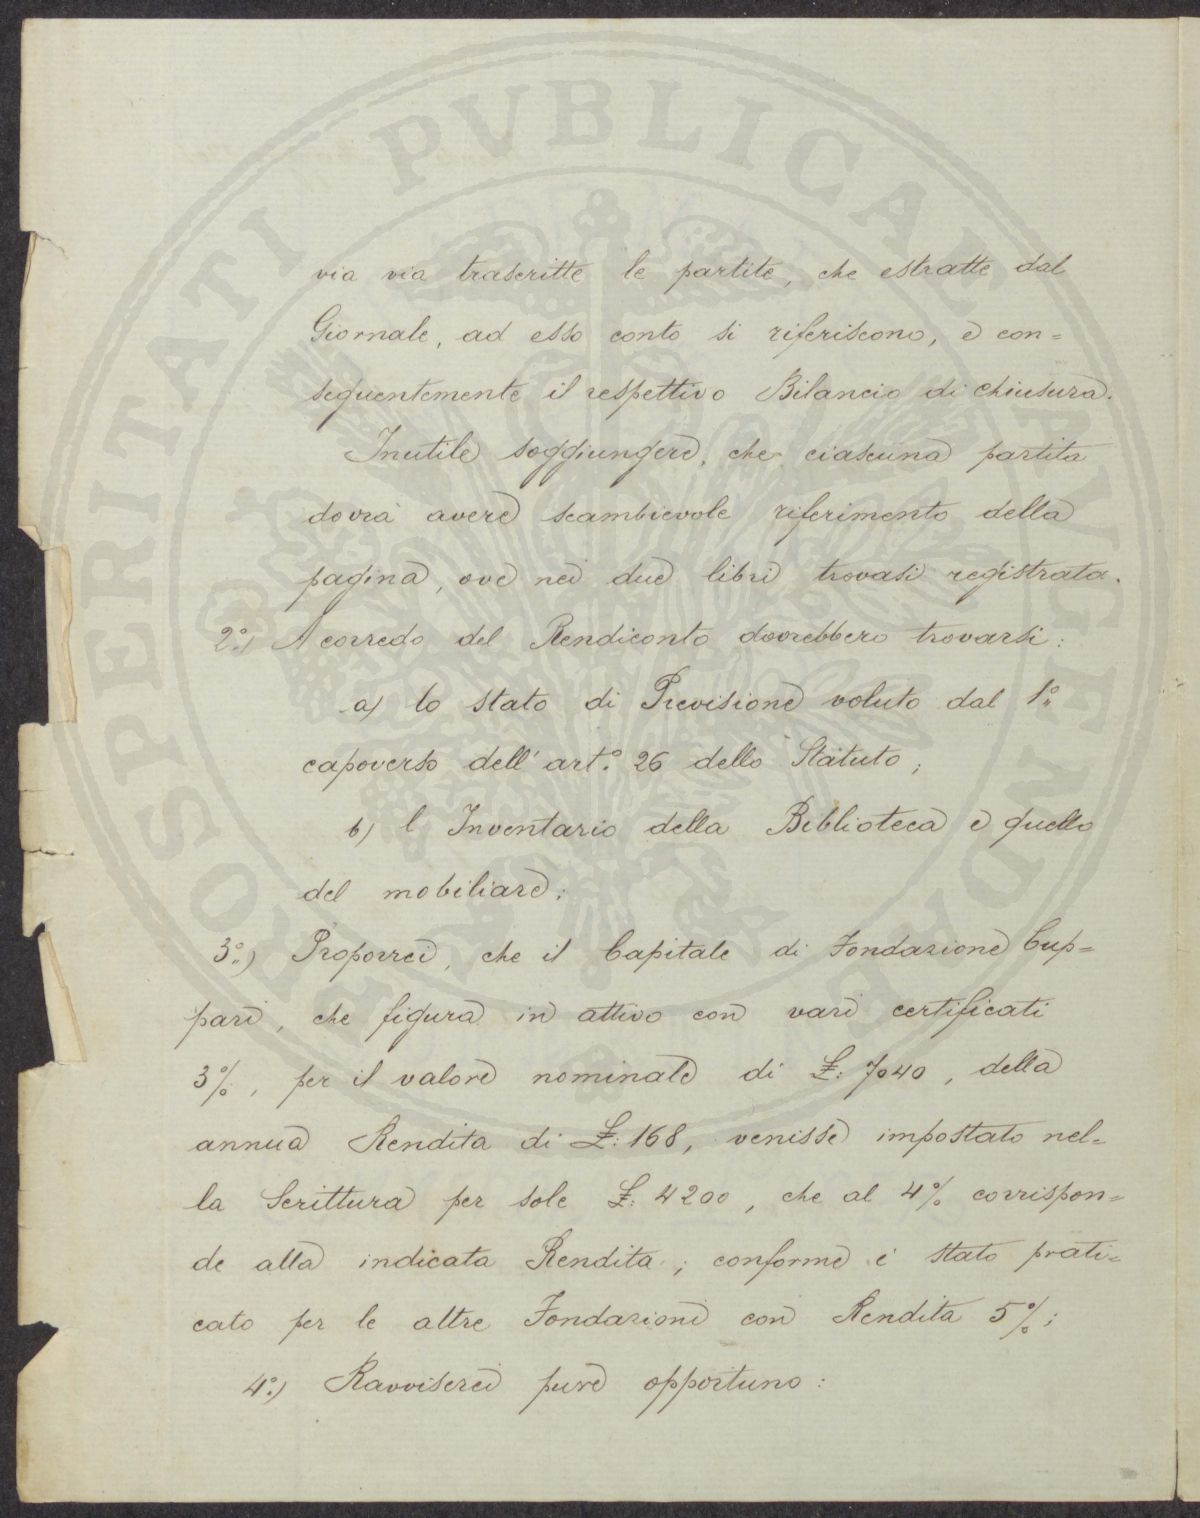 via via trascritte le partite, che estratte dal
Giornale, ad esso conto si riferiscono, e con=
seguentemente il respettivo Bilancio di chiusura.
Inutile soggiungere, che ciascuna partita
dovrà avere scambievole riferimento della
pagina, ove nei due libri trovasi registrata.
2º) A corredo del Rendiconto dovrebbero trovarsi:
a) lo stato di Previsione voluto dal 1º
capoverso dell'art.º 26 dello Statuto;
b) l Inventario della Biblioteca e quello
del mobiliare;
3º) Proporrei, che il Capitale di Fondazione Cup=
pari, che figura in attivo con vari certificati
3%, per il valore nominale di £: 7040, della
annua Rendita di £: 168, venisse impostato nel=
la Scrittura per sole £: 4200, che al 4% corrispon=
de alla indicata Rendita; conforme è stato prati=
cato per le altre Fondazioni con Rendita 5%;
4º) Ravviserei pure opportuno:
PROSPERITATI PVBLICAE AVGENDAE